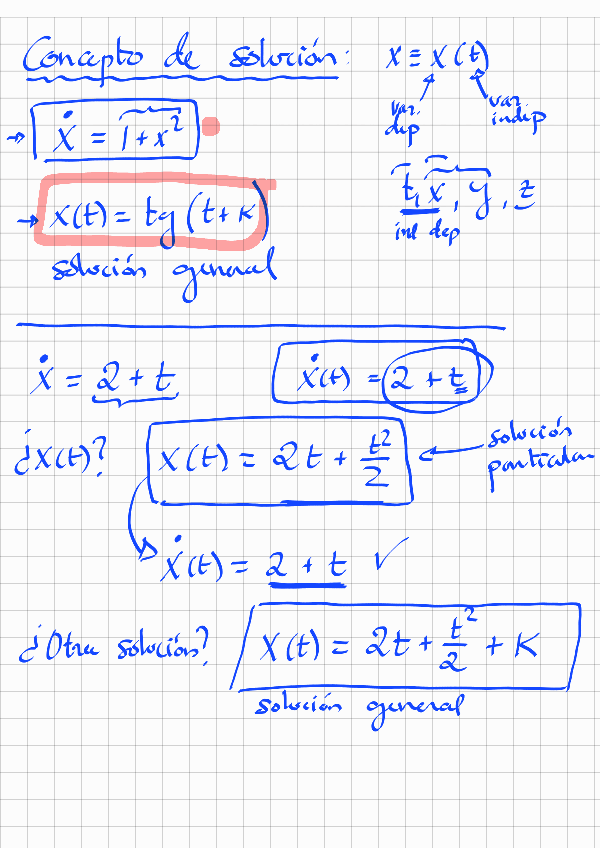 Concepto de solución: x ≡ x(t)
var. dep
var. indep
→ ẋ = 1 + x²
→ x(t) = tg(t + K)
solución general
t, x, y, z
ind dep
ẋ = 2 + t
ẋ(t) = 2 + t
¿x(t)?
x(t) = 2t + t²/2
← solución
particular
ẋ(t) = 2 + t ✓
¿Otra solución?
x(t) = 2t + t²/2 + K
solución general